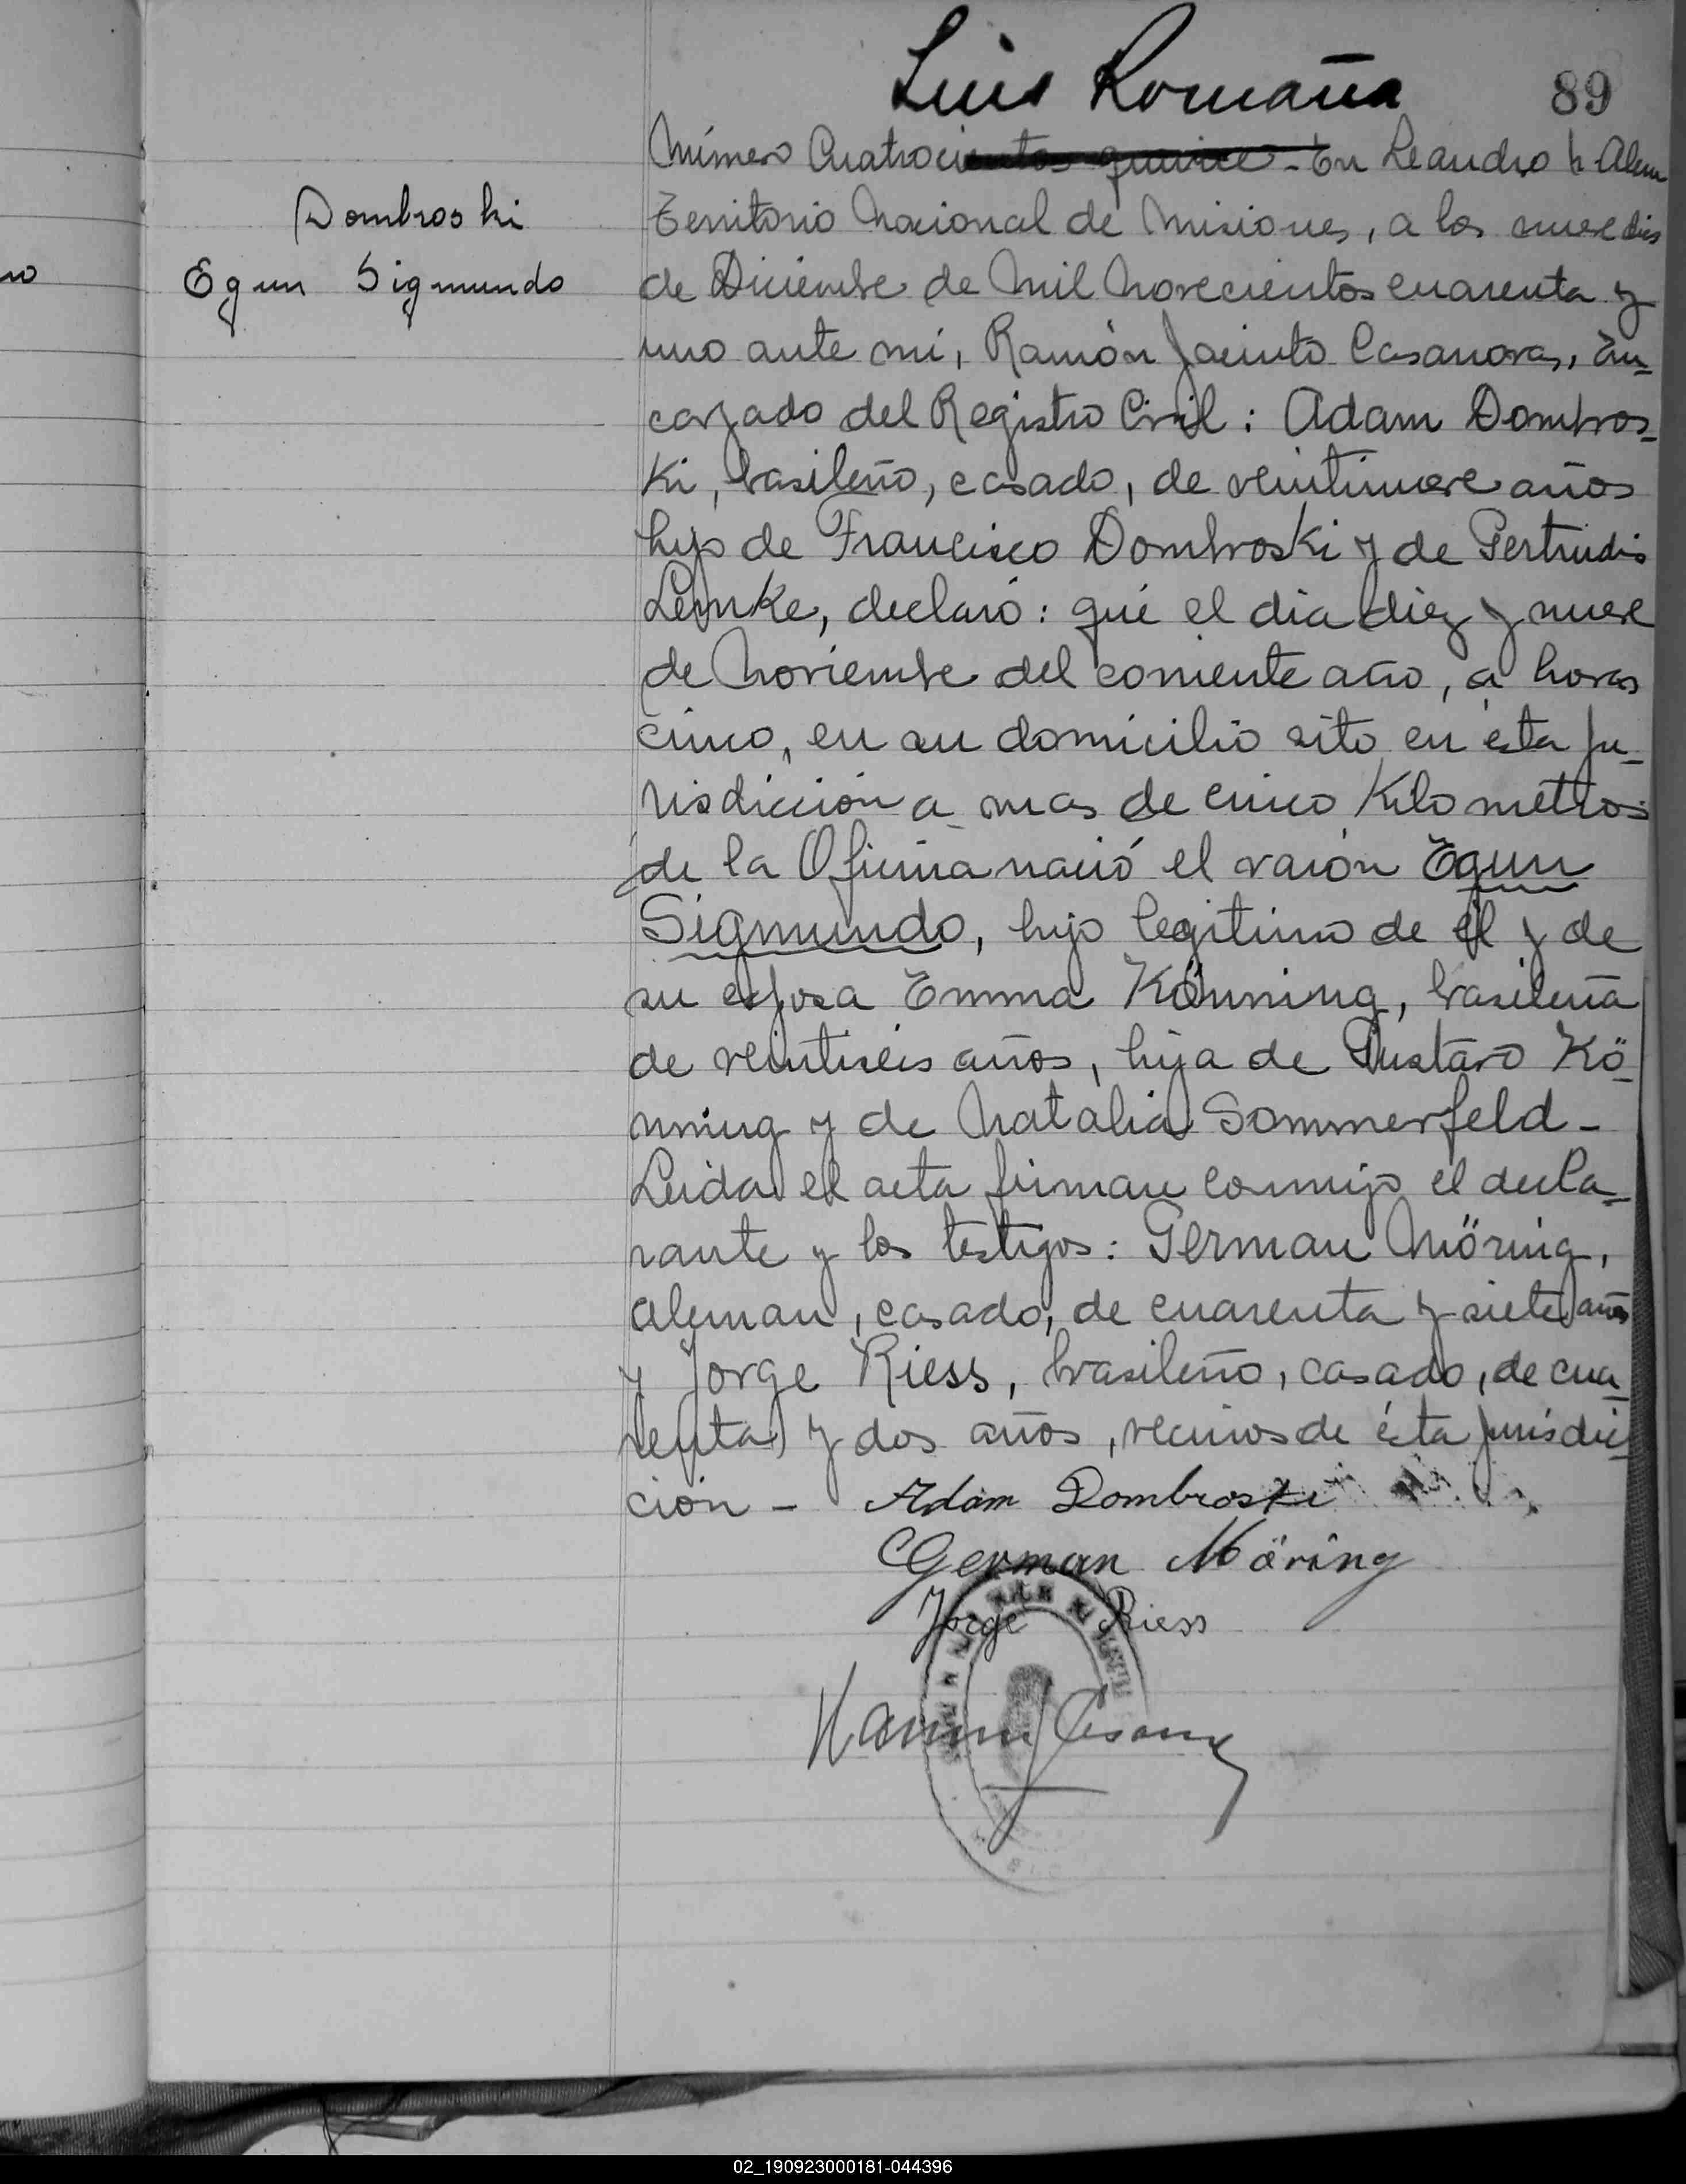 Luis Romaña
89
Número Cuatrocientos quince - En Leandro N Alem
Dombroski
Egun Sigmundo
no
Territorio Nacional de Misiones, a los nueve dias
de Diciembre de Mil Novecientos cuarenta y
uno ante mí, Ramón Jacinto Casanova, En-
cargado del Registro Civil: Adam Dombros-
ki, brasileño, casado, de veintinueve años
hijo de Francisco Dombroski y de Gertrudis
Lemke, declaró: que el dia diez y nueve
de Noviembre del corriente año, a horas
cinco, en su domicilio sito en ésta Ju-
risdicción a mas de cinco Kilometros
de la Oficina nació el varón Egun
Sigmundo, hijo legitimo de él y de
su esposa Emma Könning, brasileña
de veintiséis años, hija de Gustavo Kö-
nning y de Natalia Sommerfeld -
Leida el acta firman conmigo el decla-
rante y los testigos: German Möring,
aleman, casado, de cuarenta y siete años
y Jorge Riess, brasileño, casado, de cua-
renta y dos años, vecinos de ésta jurisdic-
ción - Adam Dombroski
German Möring
Jorge Riess
02_190923000181-044396